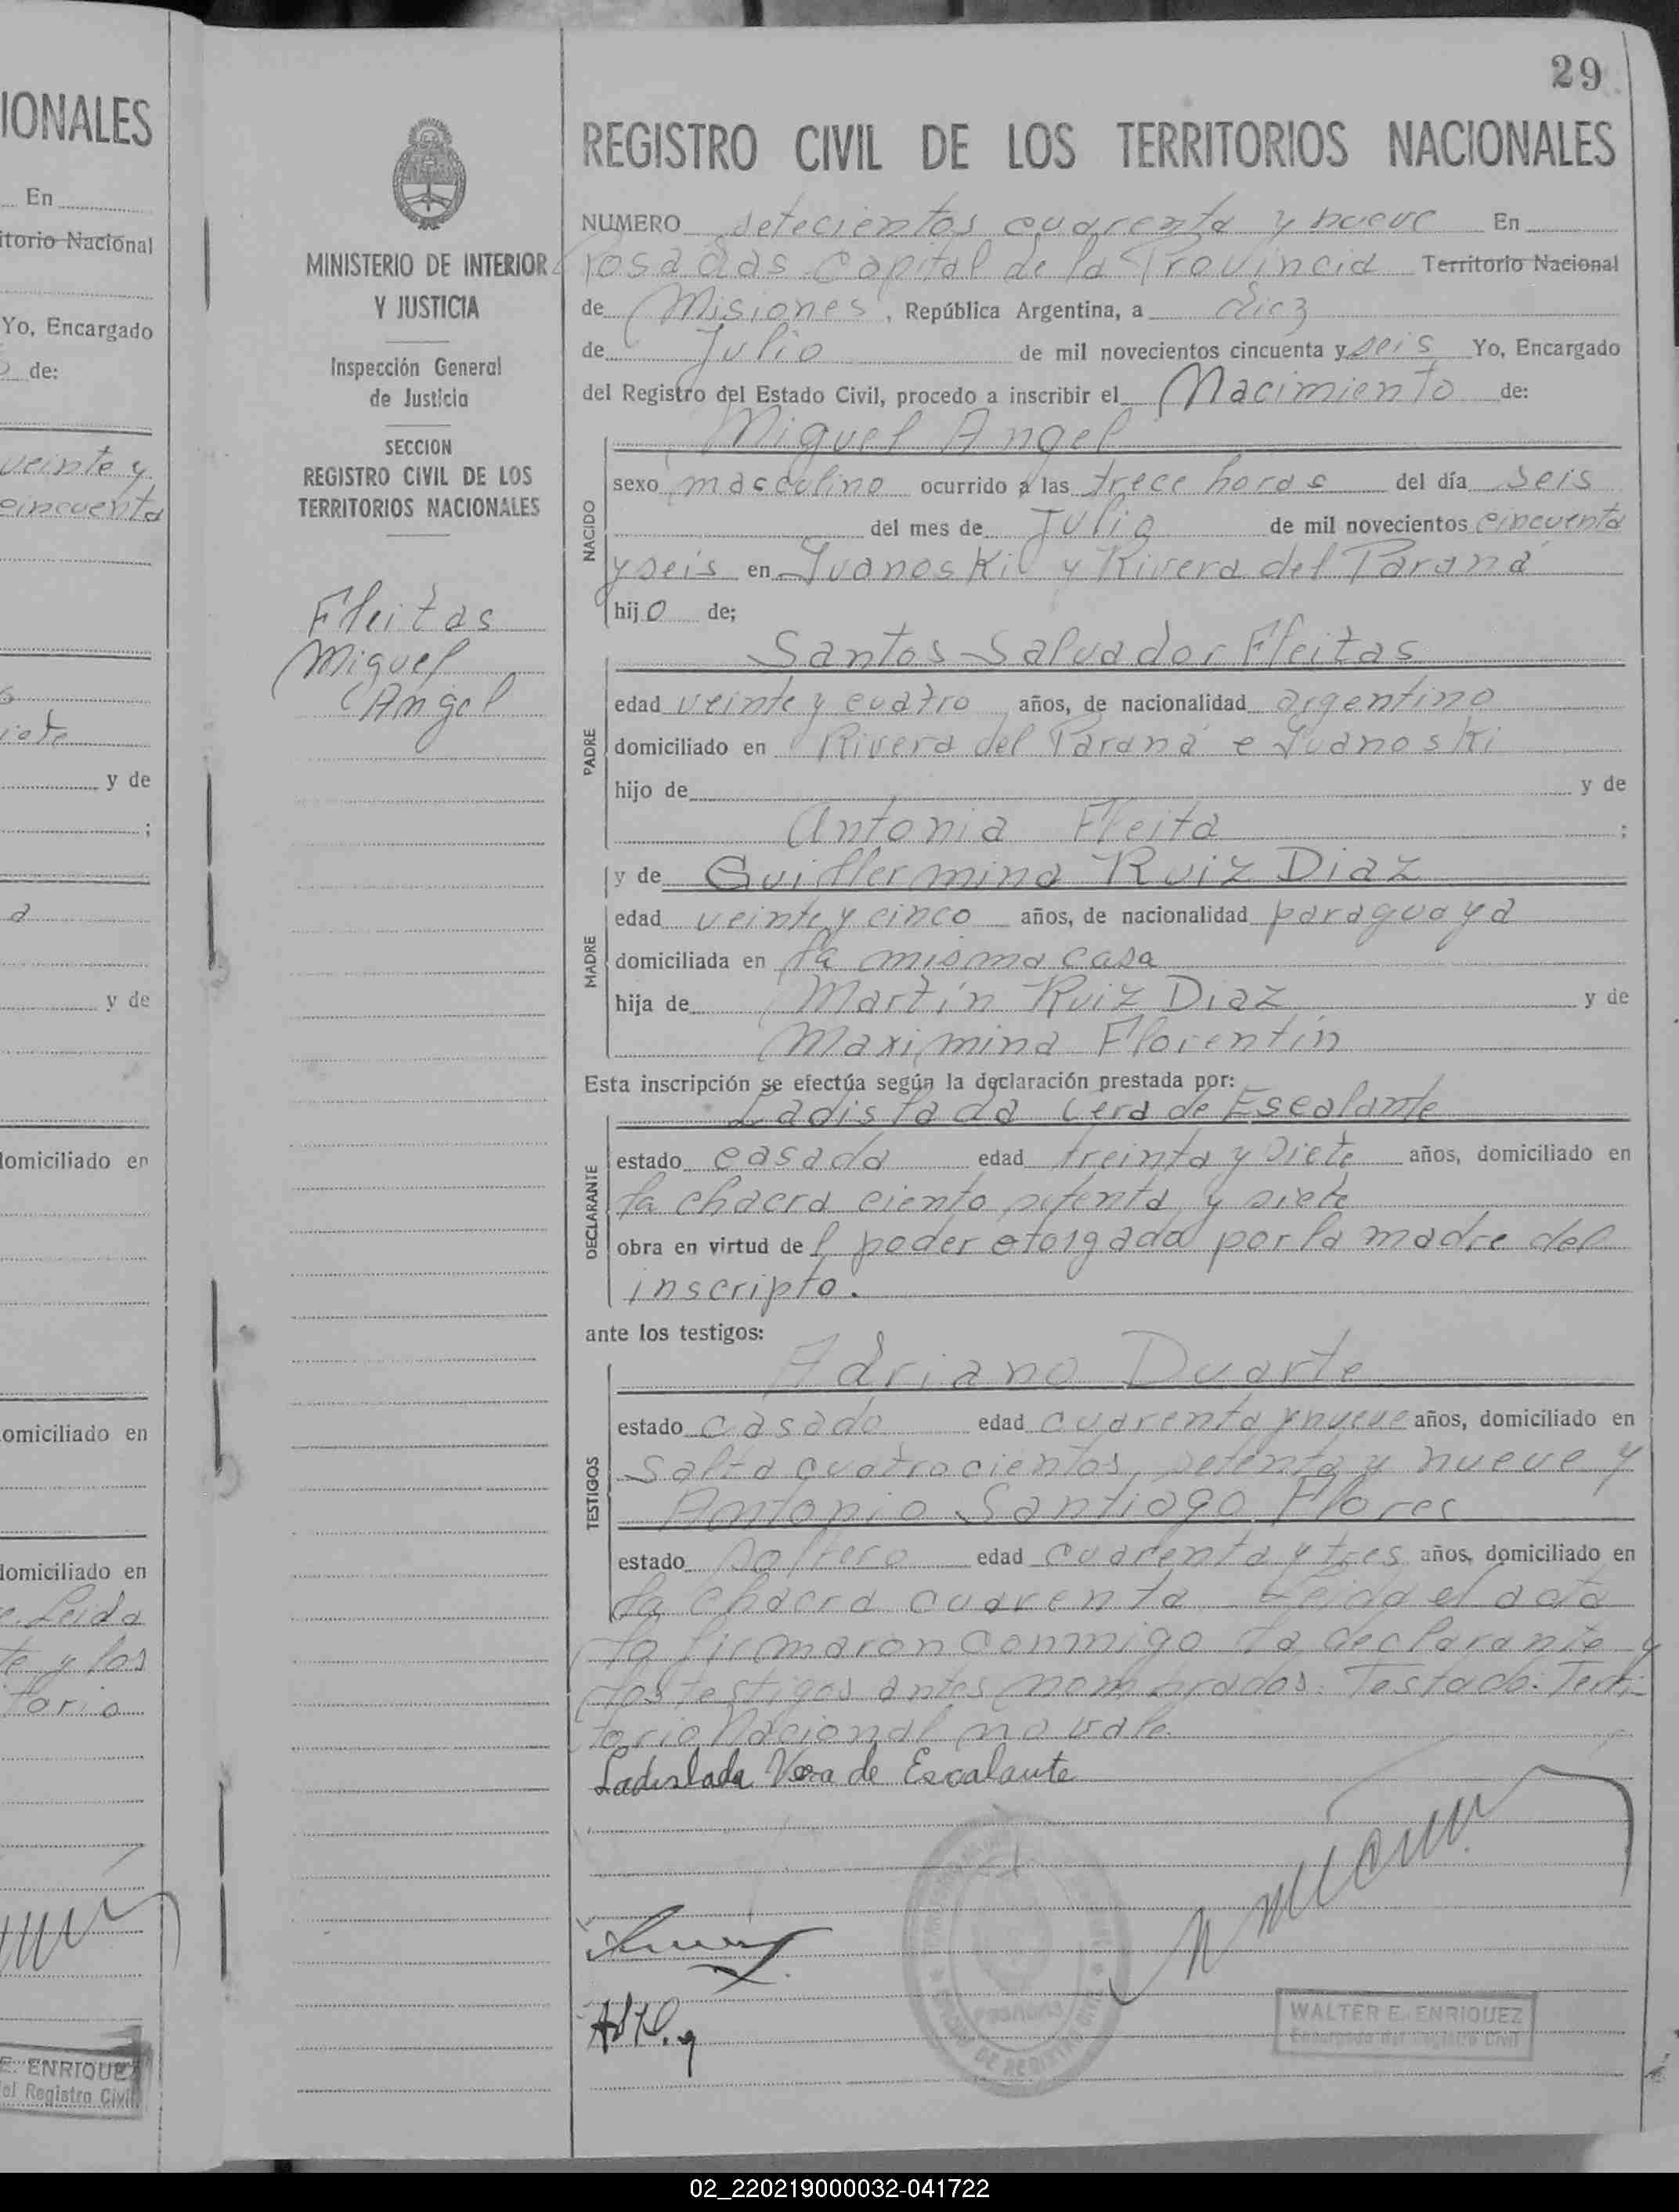 IONALES
En
itorio Nacional
Yo, Encargado
de:
veinte y
cincuenta
y de
;
a
y de
domiciliado en
omiciliado en
domiciliado en
Leida
te y los
torio
E. ENRIQUEZ
el Registro Civil
MINISTERIO DE INTERIOR
Y JUSTICIA
Inspección General
de Justicia
SECCION
REGISTRO CIVIL DE LOS
TERRITORIOS NACIONALES
Fleitas
Miguel
Angel
29
REGISTRO CIVIL DE LOS TERRITORIOS NACIONALES
NUMERO setecientos cuarenta y nueve En
Posadas Capital de la Provincia Territorio Nacional
de Misiones, República Argentina, a diez
de Julio de mil novecientos cincuenta y seis Yo, Encargado
del Registro del Estado Civil, procedo a inscribir el Nacimiento de:
Miguel Angel
NACIDO
sexo masculino ocurrido a las trece horas del día seis
del mes de Julio de mil novecientos cincuenta
y seis en Ivanoski y Rivera del Paraná
hijo de;
Santos Salvador Fleitas
PADRE
edad veinte y cuatro años, de nacionalidad argentino
domiciliado en Rivera del Paraná e Ivanoski
hijo de y de
Antonia Fleita ;
y de Guillermina Ruiz Diaz
MADRE
edad veinte y cinco años, de nacionalidad paraguaya
domiciliada en la misma casa
hija de Martín Ruiz Diaz y de
Maximina Florentín
Esta inscripción se efectúa según la declaración prestada por:
Ladislada Vera de Escalante
DECLARANTE
estado casada edad treinta y siete años, domiciliado en
la chacra ciento setenta y siete
obra en virtud del poder otorgado por la madre del
inscripto.
ante los testigos:
Adriano Duarte
TESTIGOS
estado casado edad cuarenta y nueve años, domiciliado en
Salta cuatrocientos setenta y nueve y
Antonio Santiago Flores
estado soltero edad cuarenta y tres años, domiciliado en
la chacra cuarenta Leida el acta
la firmaron conmigo la declarante y
los testigos antes nombrados. Testado: Terri-
torio Nacional no vale.
Ladislada Vera de Escalante
POSADAS
WALTER E. ENRIQUEZ
Encargado del Registro Civil
02_220219000032-041722